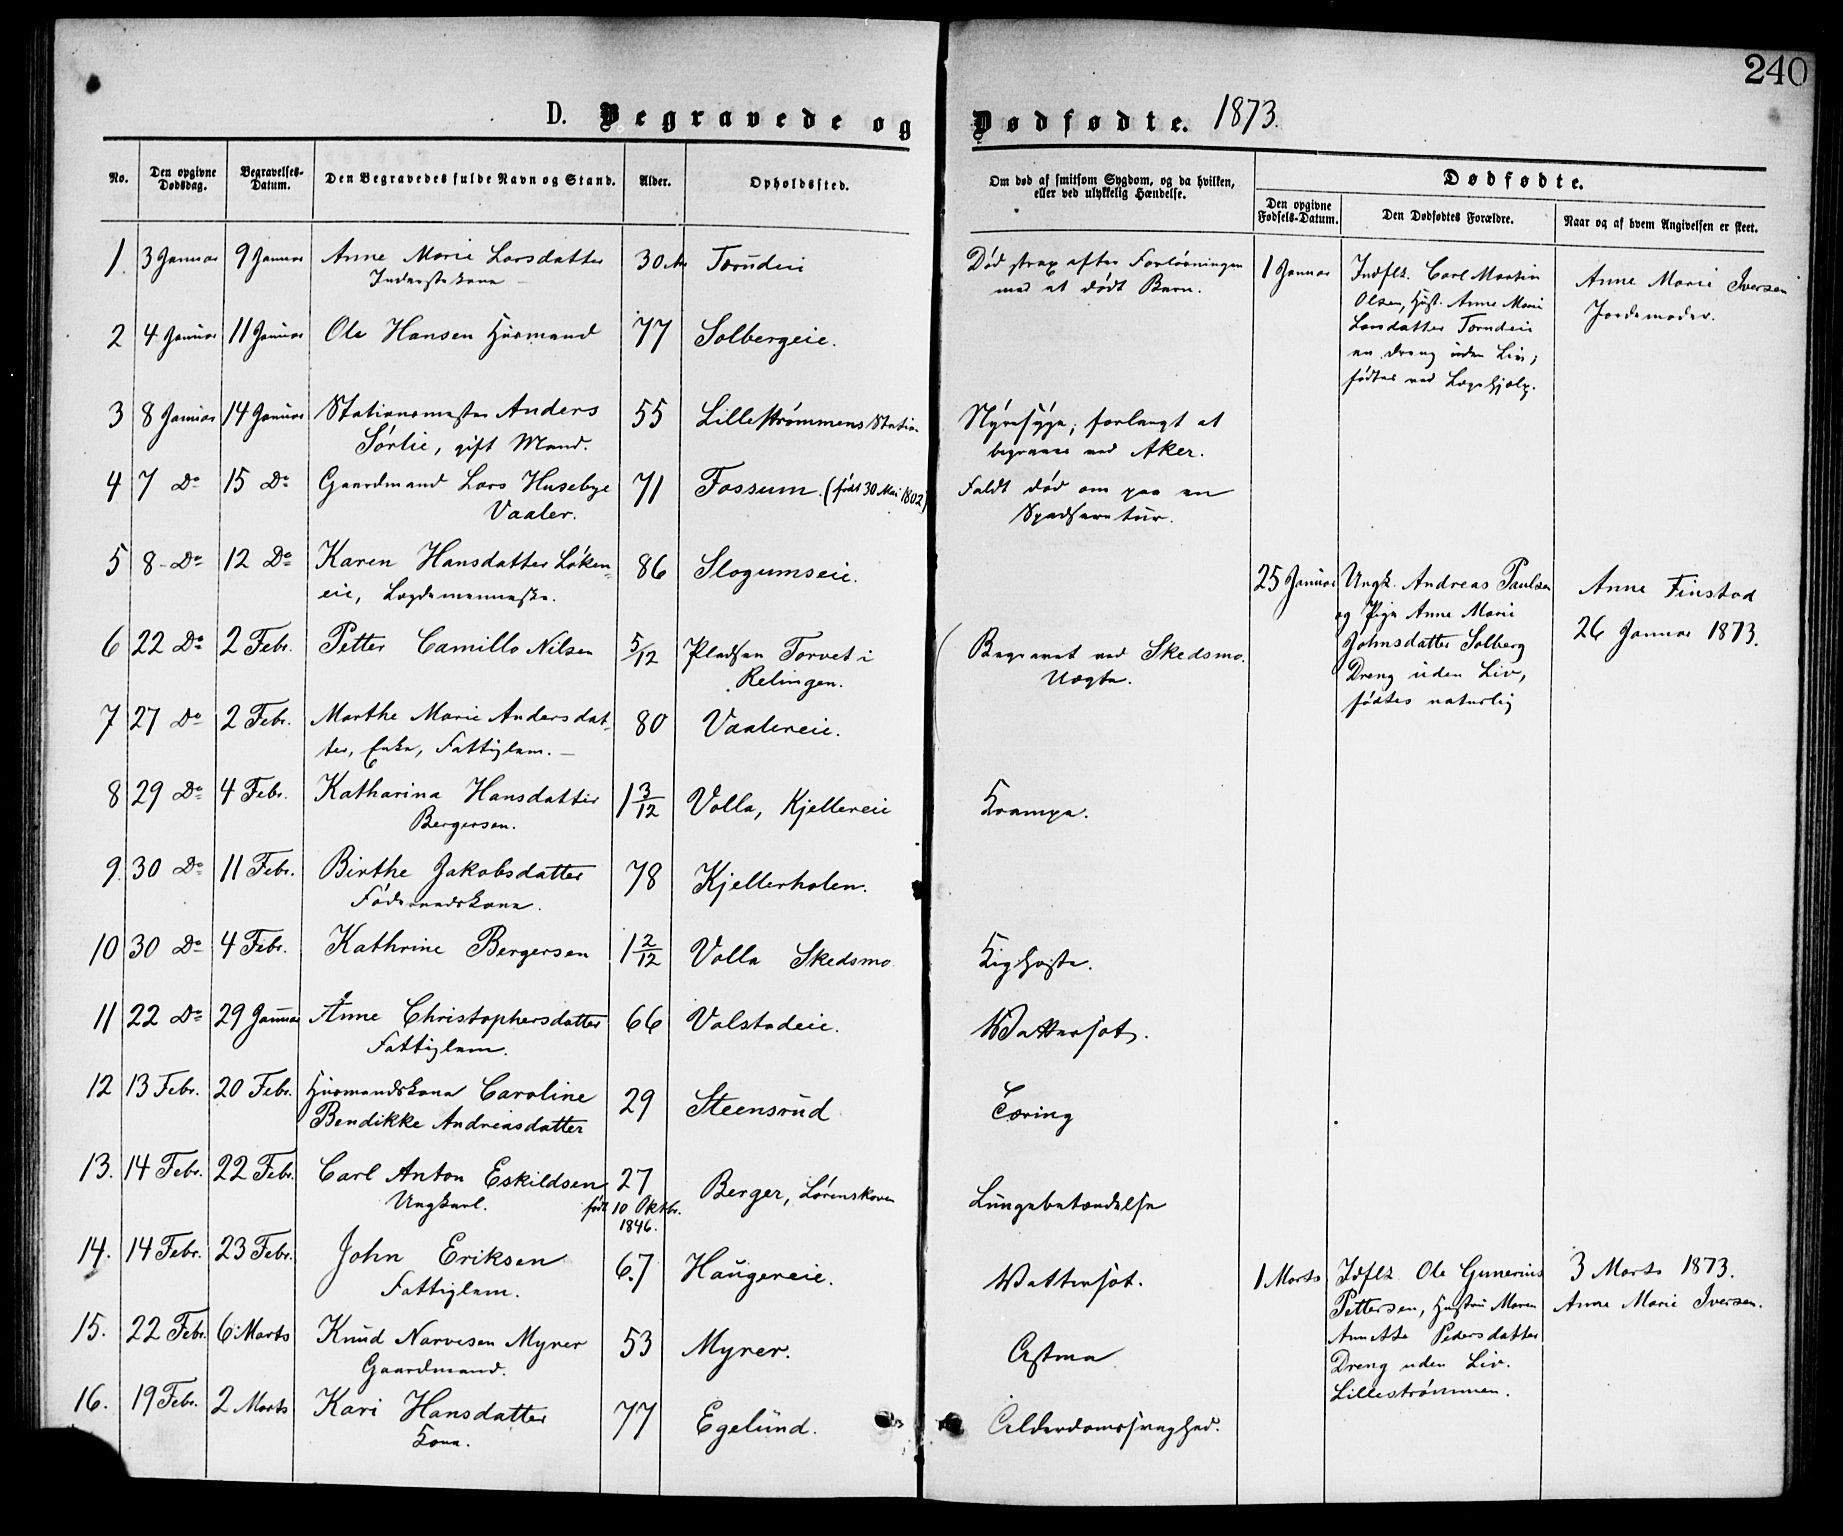 240
D. Begravede og Dødfødte. 1873.
No.
Den opgivne Dødsdag.
Begravelses-Datum.
Den Begravedes fulde Navn og Stand.
Alder.
Opholdssted.
Om død af smitsom Sygdom, og da hvilken, eller ved ulykkelig Hændelse.
Dødfødte.
Den opgivne Fødsels-Datum.
Den Dødfødtes Forældre.
Naar og af hvem Angivelsen er skeet.
1. 3 Januar 9 Januar Anne Marie Larsdatter 30 Torudeie Død strax efter Forløsningen 1 Januar Indflz. Carl Martin Anne Marie Iversen
Inderstekone med et dødt Barn. Olsen, Hust. Anne Marie Jordemoder.
Larsdatter Torudeie
en Dreng uden Liv,
fødtes ved Lægehjælp.
2 4 Januar 11 Januar Ole Hansen Husmand 77 Solbergeie.
3 8 Januar 14 Januar Stationsmester Anders 55 Lillestrømmens Station Nyresyge, forlangt at
Sørlie, gift Mand. begraves ved Aker.
4 7 Do 15 Do Gaardmand Lars Husebye 71 Fossum. (født 30 Mai 1802) Faldt død om paa en
Vaaler. Spadseretur.
5 8 Do 12 Do Karen Hansdatter Løken- 86 Slogumseie. 25 Januar Ungk. Andreas Paulsen Anne Finstad
eie, Lægdemenneske. og Pige Anne Marie 26 Januar 1873.
Johnsdatter Solberg
Dreng uden Liv,
fødtes naturlig
6 22 Do 2 Febr. Petter Camillo Nilsen 5/12 Pladsen Torvet i Begravet ved Skedsmo.
Relingen. Uægte.
7 27 Do 2 Febr. Marthe Marie Andersdat- 80 Vaalereie.
ter, Enke, Fattiglem.
8 29 Do 4 Febr. Katharina Hansdatter 1 3/12 Volla, Kjellereie Krampe.
Bergersen.
9. 30 Do 11 Febr. Birthe Jakobsdatter 78 Kjellerholen.
Føderaadskone.
10 30 Do 4 Febr. Kathrine Bergersen 1 2/12 Volla Skedsmo Kighoste.
11 22 Do 29 Januar Anne Christophersdatter 66 Valstadeie. Wattersot.
Fattiglem.
12 13 Febr. 20 Febr. Husmandskone Caroline 29 Steensrud Tæring
Bendikke Andreasdatter
13. 14 Febr. 22 Febr. Carl Anton Eskildsen 27 Berger, Lørenskoven Lungebetændelse
Ungkarl. født 10 Oktbr. 1846.
14. 14 Febr. 23 Febr. John Eriksen 67 Haugereie. Wattersot. 1 Marts Idflz. Ole Gunerius 3 Marts 1873.
Fattiglem. Pettersen, Hustru Maren Anne Marie Iversen.
Annette Pedersdatter
Dreng uden Liv.
Lillestrømmen.
15. 22 Febr. 6 Marts Knud Narvesen Myrer 53 Myrer. Astma
Gaardmand.
16. 19 Febr. 2 Marts Kari Hansdatter 77 Egelund. Alderdomssvaghed.
Kone.